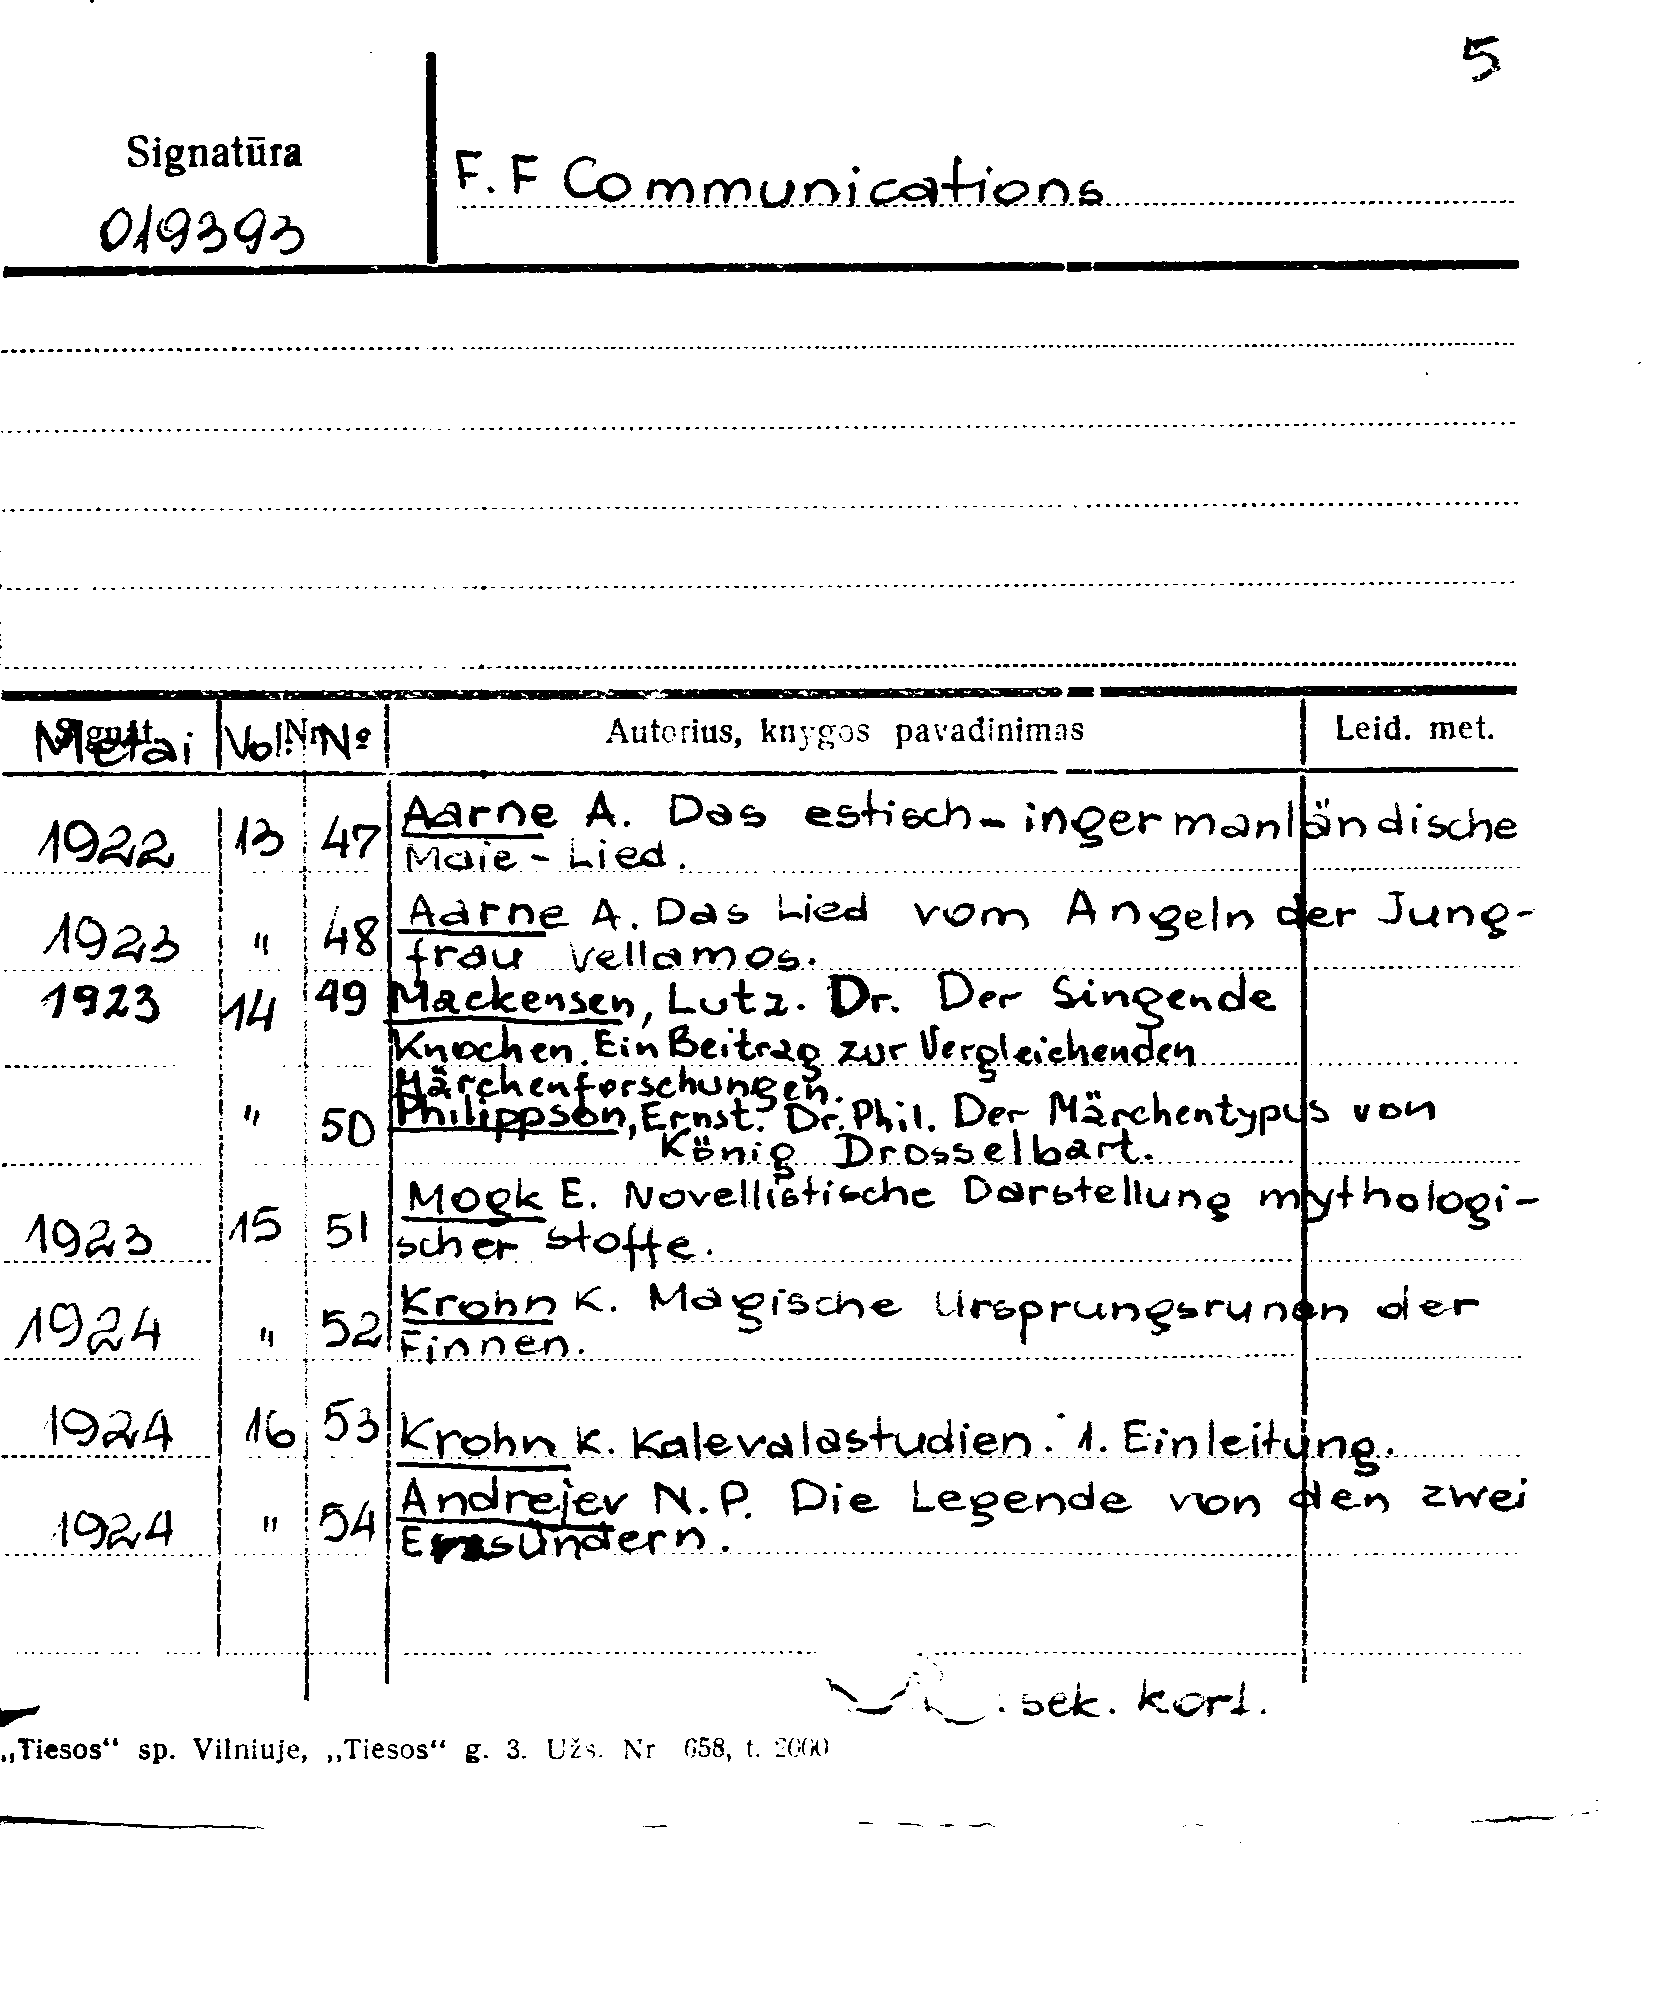 5
Signatūra
F. F Communications
019393
Metai Vol. Nr Nº Autorius, knygos pavadinimas Leid. met.
1922 13 47 Aarne A. Das estisch-ingermanländische
Maie-Lied.
1923 " 48 Aarne A. Das Lied vom Angeln der Jung-
frau Vellamos.
1923 14 49 Mackensen, Lutz. Dr. Der Singende
Knochen. Ein Beitrag zur Vergleichenden
Märchenforschungen.
" 50 Philippson, Ernst. Dr. Phil. Der Märchentypus von
König Drosselbart.
1923 15 51 Mogk E. Novellistische Darstellung mythologi-
scher Stoffe.
1924 " 52 Krohn K. Magische Ursprungsrunen der
Finnen.
1924 16 53 Krohn K. Kalevalastudien. 1. Einleitung.
1924 " 54 Andrejev N. P. Die Legende von den zwei
. sek. kort.
„Tiesos“ sp. Vilniuje, „Tiesos“ g. 3. Užs. Nr 658, t. 2000